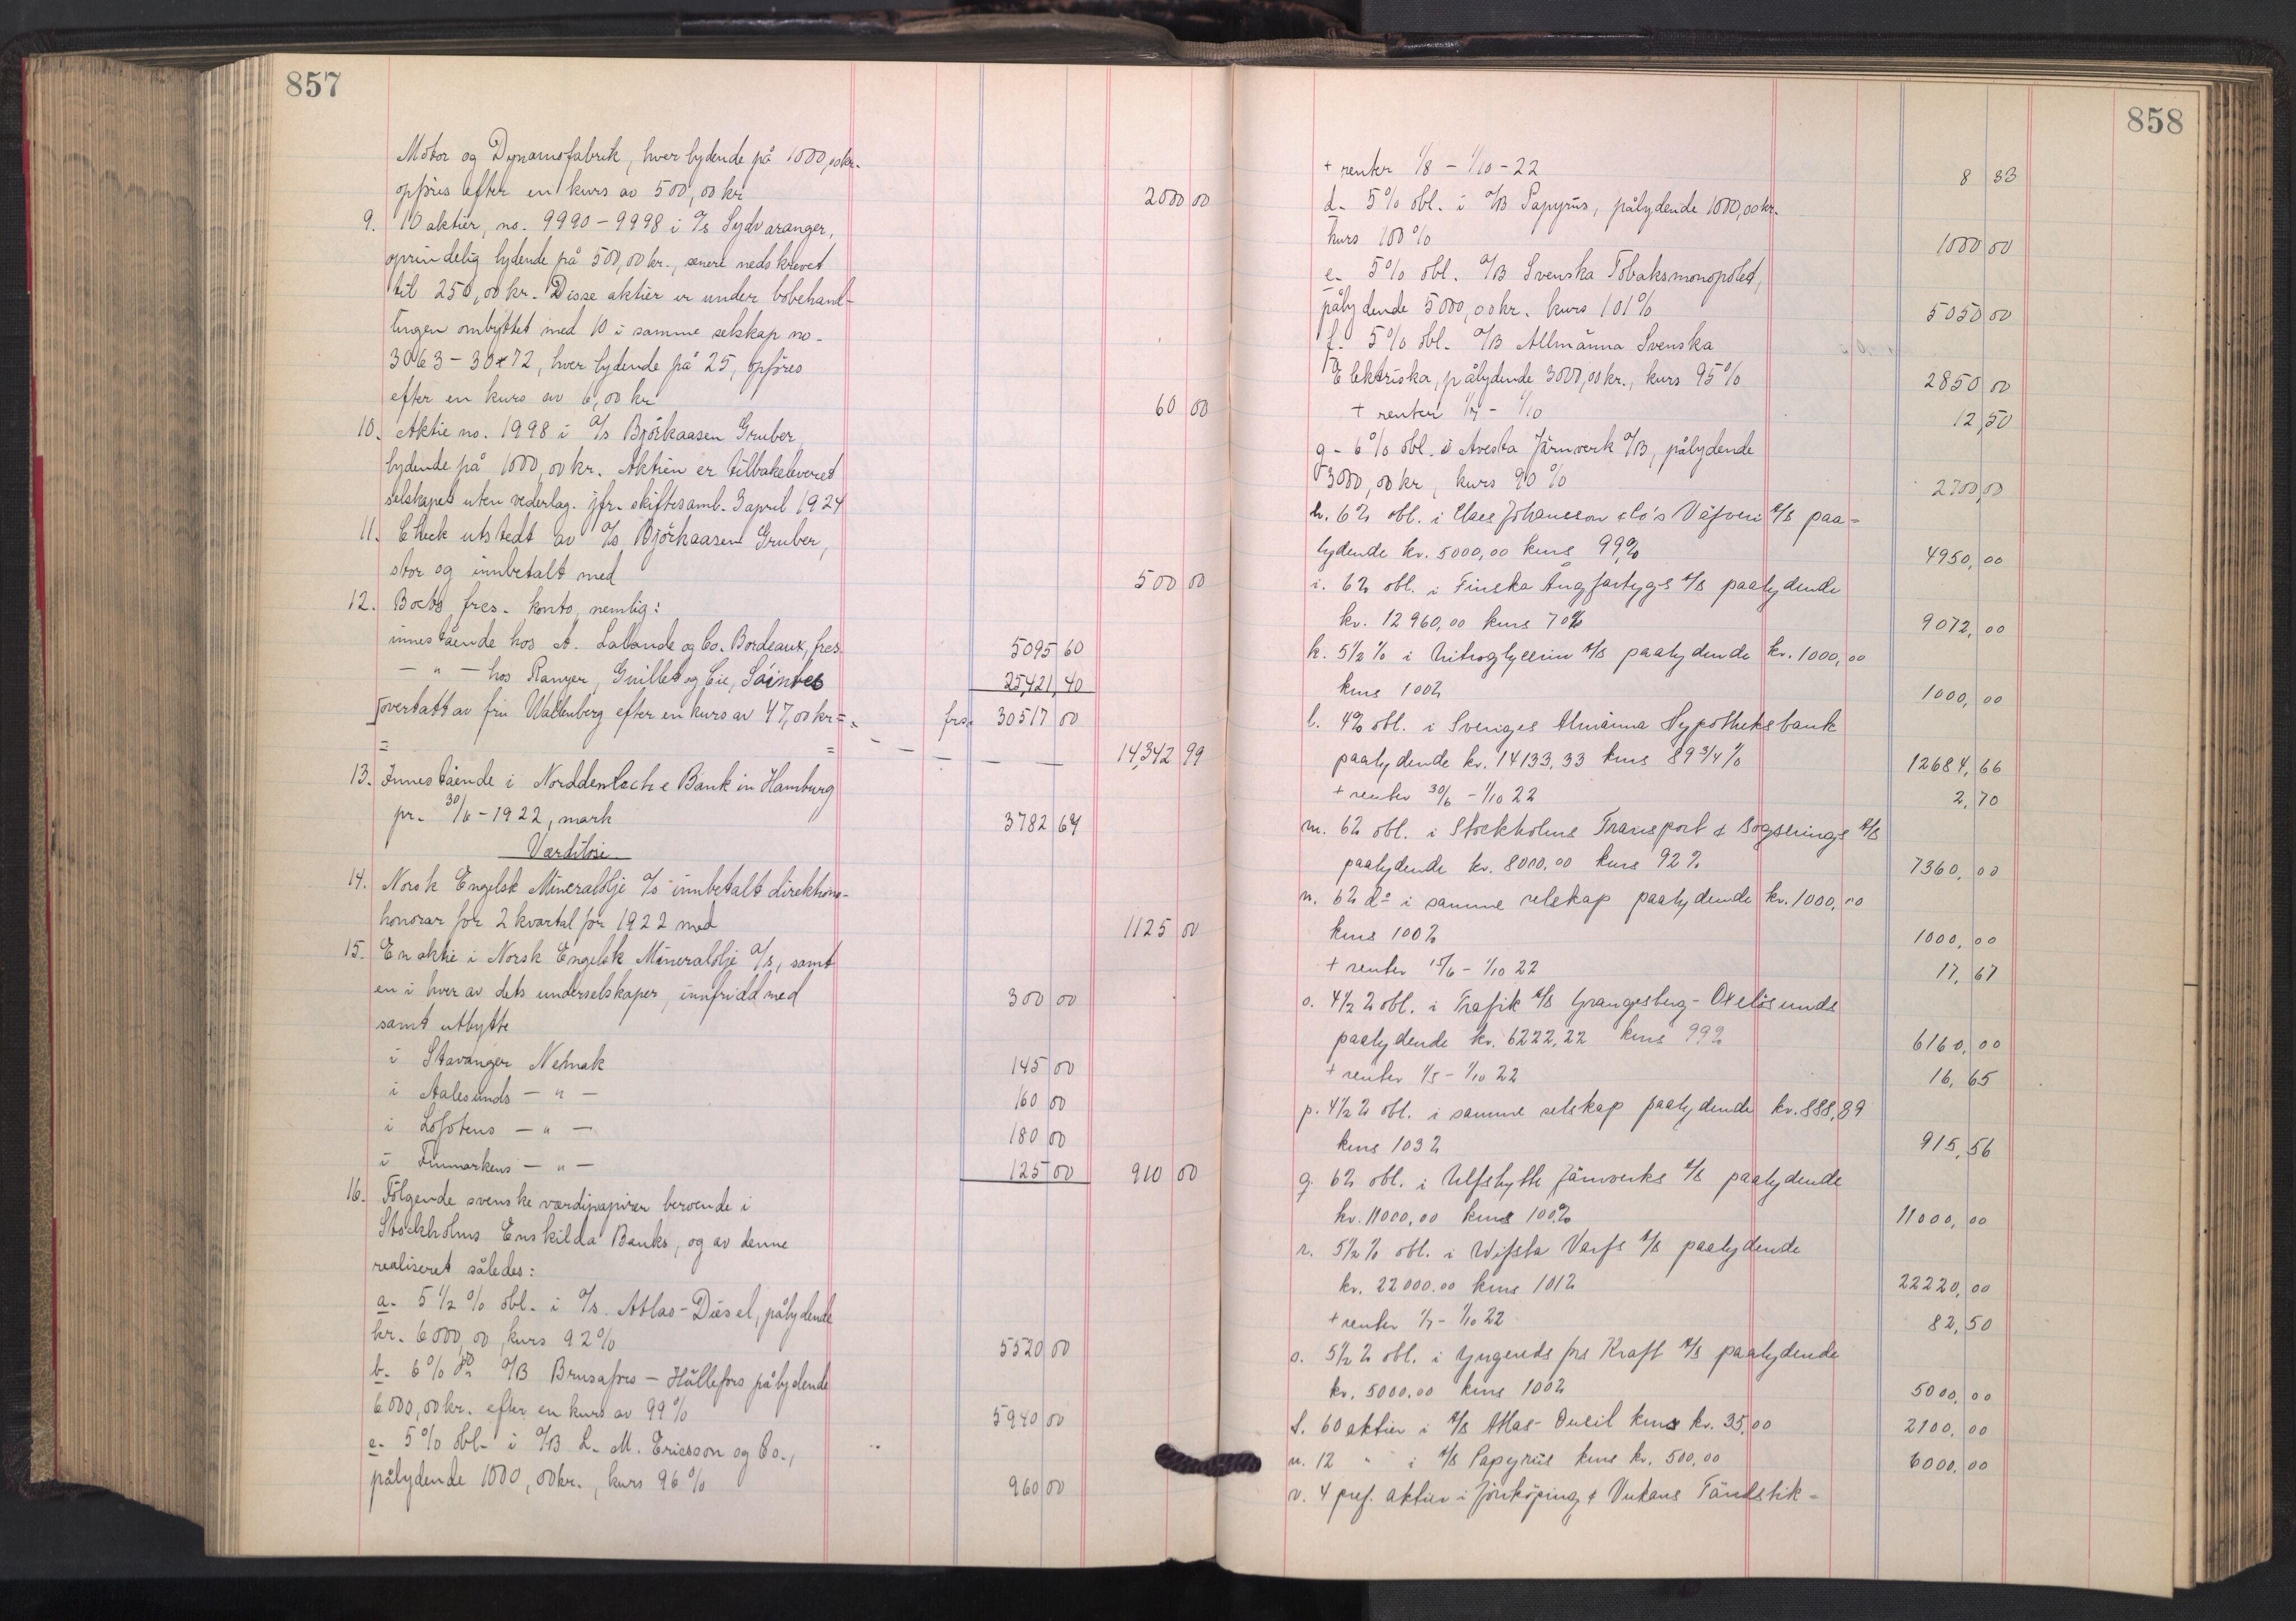 857
Motor og Dynamofabrik, hver lydende på 1000,00 kr.
opføres efter en kurs av 500,00 kr 2000 00
9. 10 aktier, no. 9990 – 9998 i A/s Sydvaranger,
oprindelig lydende på 500,00 kr., senere nedskrevet
til 250,00 kr. Disse aktier er under bobehand-
lingen ombyttet med 10 i samme selskap no.
3063 – 3072, hver lydende på 25, opføres
efter en kurs av 6,00 kr 60 00
10. Aktie no. 1998 i A/s Björkaasen Gruber,
lydende på 1000,00 kr. Aktien er tilbakeleveret
selskapet uten vederlag. jfr. skiftesaml. 3 april 1924
11. Check utstedt av A/s Björkaasen Gruber,
stor og innbetalt med 500 00
12. Boets frcs. konto, nemlig:
innestående hos A. Lalande og Co. Bordeaux, frcs. 5095 60
— " — hos Ranyer, Guillet og Cie, Saintes 25421,40
overtatt av fru Wallenberg efter en kurs av 47,00 kr = frs. 30517 00
= = — — — — — 14,342 99
13. Innestående i Norddeutsche Bank in Hamburg
pr. 30/6 – 1922, mark 3782 64
Værdiløse
14. Norsk Engelsk Mineralolje A/s innbetalt direktions-
honorar for 2 kvartal for 1922 med 1125 00
15. En aktie i Norsk Engelsk Mineralolje A/s, samt
en i hver av dets underselskaper, innfridd med 300 00
samt utbytte
i Stavanger Nemak 145 00
i Aalesunds — " — 160 00
i Lofotens — " — 180 00
i Finmarkens — " — 125 00 910 00
16. Følgende svenske værdipapirer beroende i
Stockholms Enskilda Banks, og av denne
realiseret således:
a. 5 1/2 % obl. i A/s. Atlas-Diesel, pålydende
kr. 6000,00, kurs 92 % 5520 00
b. 6 % do A/B Brusafors – Hällefors pålydende
6000,00 kr. efter en kurs av 99 % 5940 00
c. 5 % obl. i A/B L. M. Ericsson og Co.,
pålydende 1000,00 kr., kurs 96 % 960 00
858
+ renter 1/8 – 1/10 – 22 8 33
d. 5 % obl. i A/B Papyrus, pålydende 1000,00 kr.
kurs 100 % 1000 00
e. 5 % obl. A/B Svenska Tobaksmonopolet,
pålydende 5000,00 kr. kurs 101 % 5050 00
f. 5 % obl. A/B Allmänna Svenska
Elektriska, pålydende 3000,00 kr., kurs 95 % 2850 00
+ renter 1/9 – 1/10 12,50
g. 6 % obl. i Avesta Järnverk A/B, pålydende
3000,00 kr, kurs 90 % 2700,00
h. 6% obl. i Claes Johansson & Co's Väfveri A/B paa-
lydende kr. 5000,00 kurs 99% 4950,00
i. 6% obl. i Finska Ångfartygs A/B paalydende
kr. 12960,00 kurs 70% 9072,00
k. 5 1/2 % i Nitroglycerin A/B paalydende kr. 1000,00
kurs 100% 1000,00
l. 4% obl. i Sveriges Almänna Hypotheksbank
paalydende kr. 14133,33 kurs 89 3/4 % 12684,66
+ renter 30/6 – 1/10 22 2,70
m. 6% obl. i Stockholms Transport & Bogserings A/B
paalydende kr. 8000,00 kurs 92 % 7360,00
n. 6% do i samme selskap paalydende kr. 1000,00
kurs 100% 1000,00
+ renter 15/6 – 1/10 22 17,67
o. 4 1/2 % obl. i Trafik A/B Grangesberg-Oxelösunds
paalydende kr. 6222,22 kurs 99% 6160,00
+ renter 1/5 – 1/10 22 16,65
p. 4 1/2 % obl. i samme selskap paalydende kr. 888,89
kurs 103% 915,56
q. 6% obl. i Ulfshytte Järnverks A/B paalydende
kr. 11000,00 kurs 100% 11000,00
r. 5 1/2 % obl. i Wifsta Varfs A/B paalydende
kr. 22000.00 kurs 101% 22220,00
+ renter 1/9 – 1/10 22 82,50
s. 5 1/2 % obl. i Yngereds frs Kraft A/B paalydende
kr. 5000.00 kurs 100% 5000,00
t. 60 aktier i A/B Atlas- kurs kr. 35,00 2100,00
u. 12 " i A/B Papyrus kurs kr. 500,00 6000,00
v. 4 pref. aktier i Jönköping & Vulkans Tändstik-